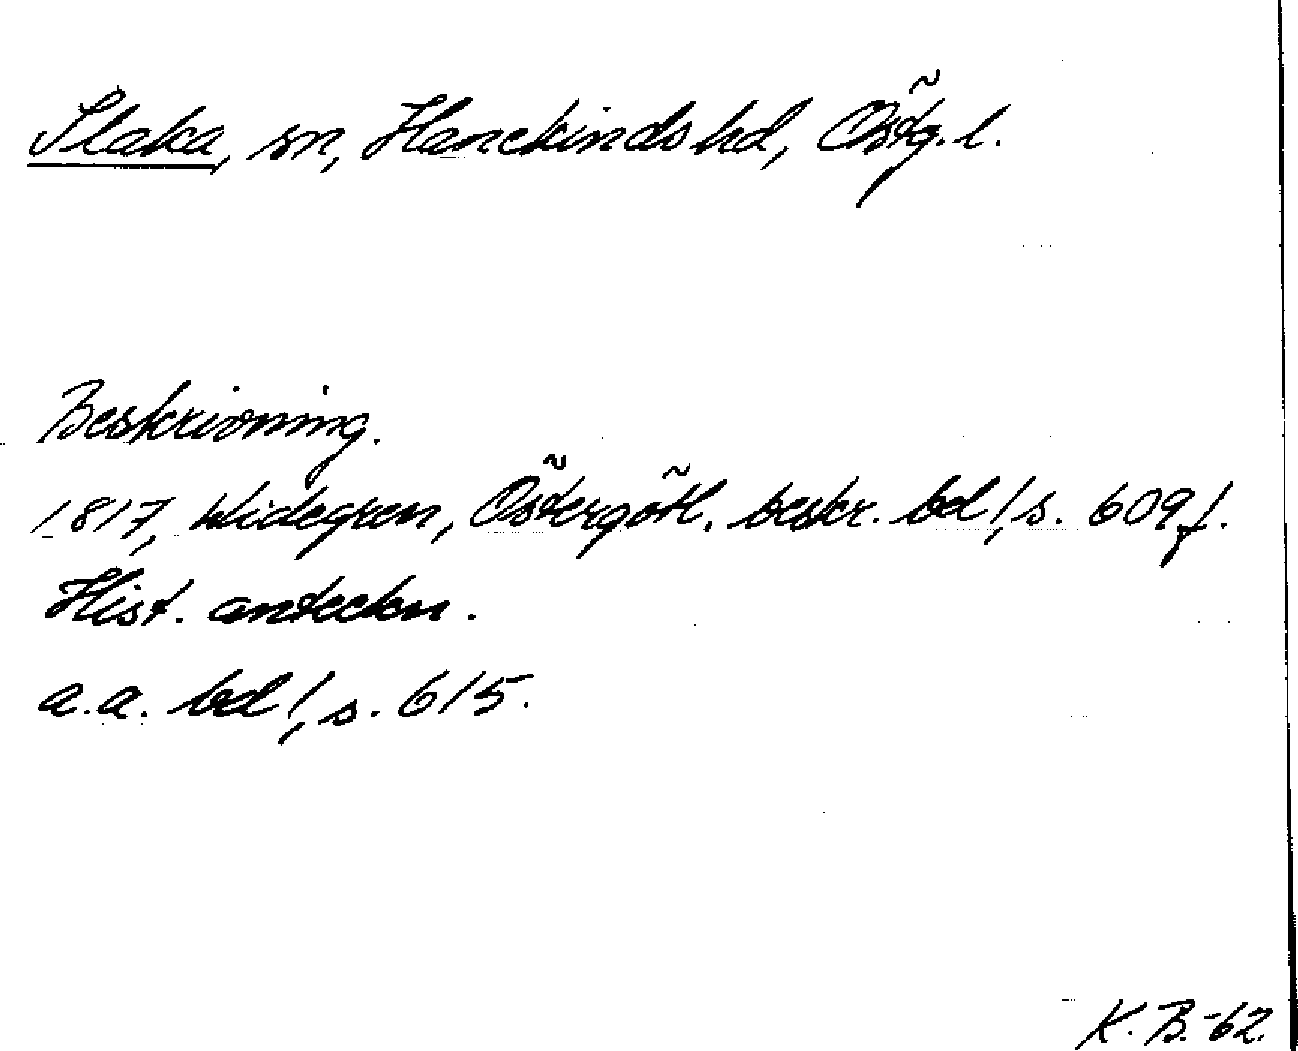 Slaka, sn, Hanekinds hd, Östg. l.
Beskrivning.
1817, Widegren, Östergötl. beskr. bd 1, s. 609 f.
Hist. anteckn.
a.a. bd 1, s. 615.
K. B. -62.